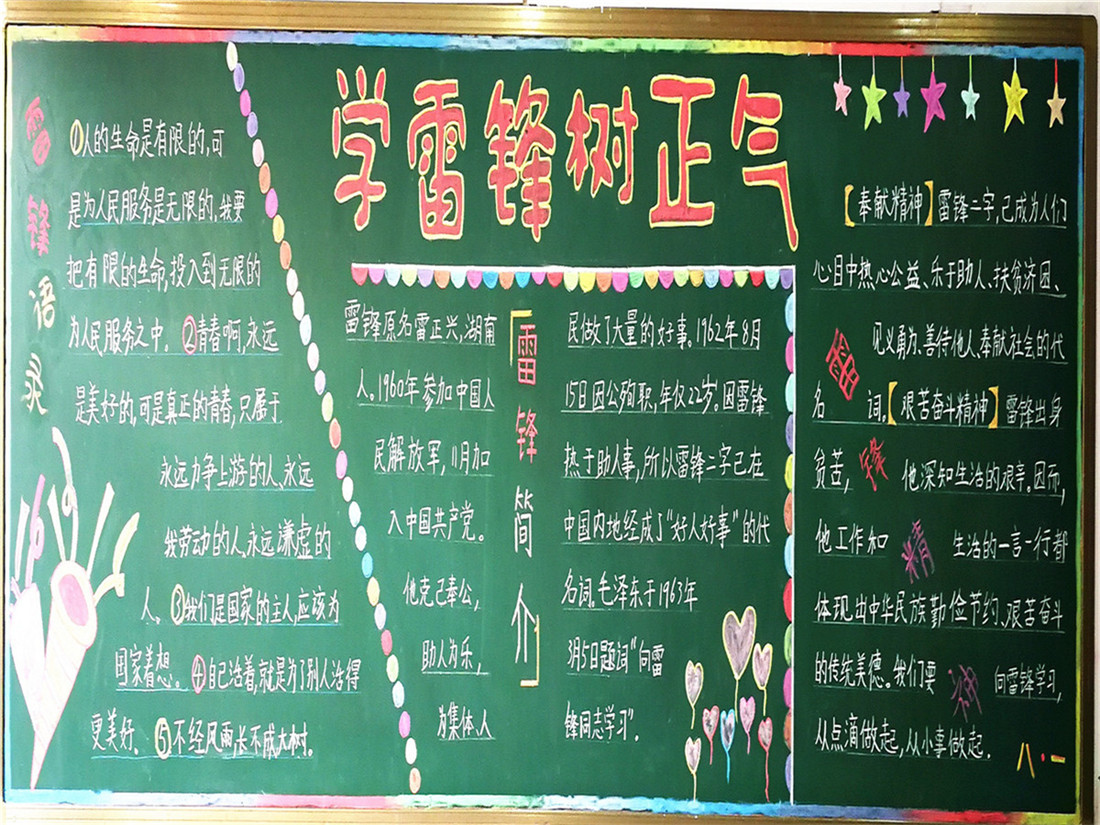 学雷锋树正气
雷锋语灵
①人的生命是有限的,可
是为人民服务是无限的,我要
把有限的生命,投入到无限的
为人民服务之中。②青春啊,永远
是美好的,可是真正的青春,只属于
永远力争上游的人,永远
我劳动的人,永远谦虚的
人。③我们是国家的主人,应该为
国家着想。④自己活着,就是为了别人活得
更美好。⑤不经风雨长不成大树。
「雷锋简介」
雷锋原名雷正兴,湖南
人。1960年参加中国人
民解放军,11月加
入中国共产党。
他克己奉公,
助人为乐,
为集体、人
民做了大量的好事。1962年8月
15日因公殉职,年仅22岁。因雷锋
热于助人事,所以雷锋二字已在
中国内地经成了“好人好事”的代
名词。毛泽东于1963年
3月5日题词“向雷
锋同志学习”.
雷锋精神
【奉献精神】雷锋二字,已成为人们
心目中热心公益、乐于助人、扶贫济困、
见义勇为、善待他人、奉献社会的代
名词。【艰苦奋斗精神】雷锋出身
贫苦,他深知生活的艰辛。因而,
他工作和生活的一言一行都
体现出中华民族勤俭节约、艰苦奋斗
的传统美德。我们要向雷锋学习,
从点滴做起,从小事做起.
八·一